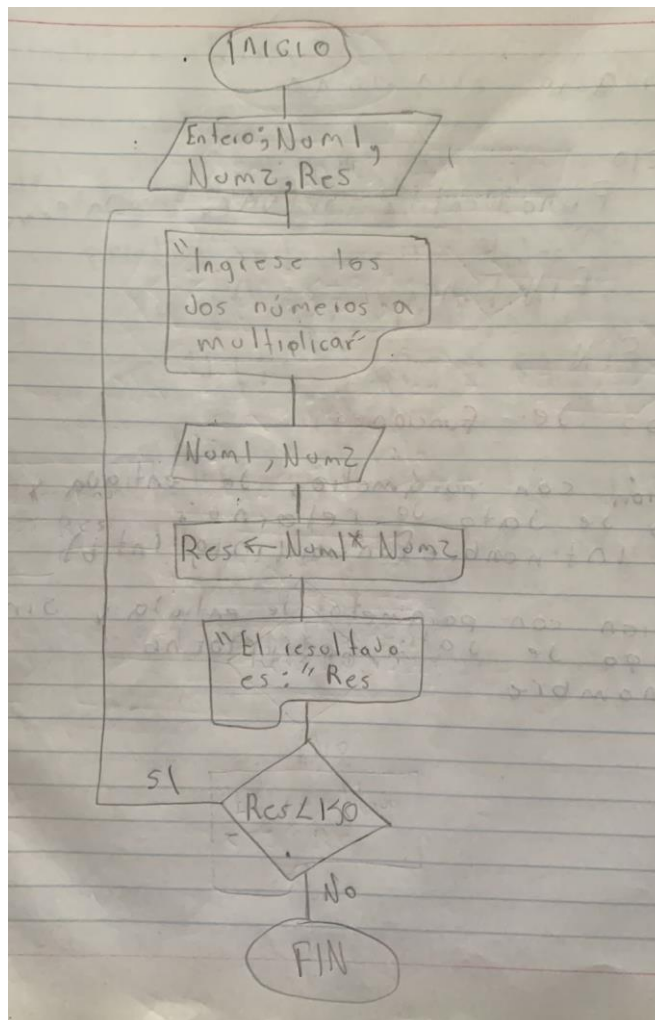 INICIO
Entero; Num1,
Num2, Res
"Ingrese los
dos números a
multiplicar"
Num1, Num2
Res ← Num1 * Num2
"El resultado
es:" Res
SI
No
FIN